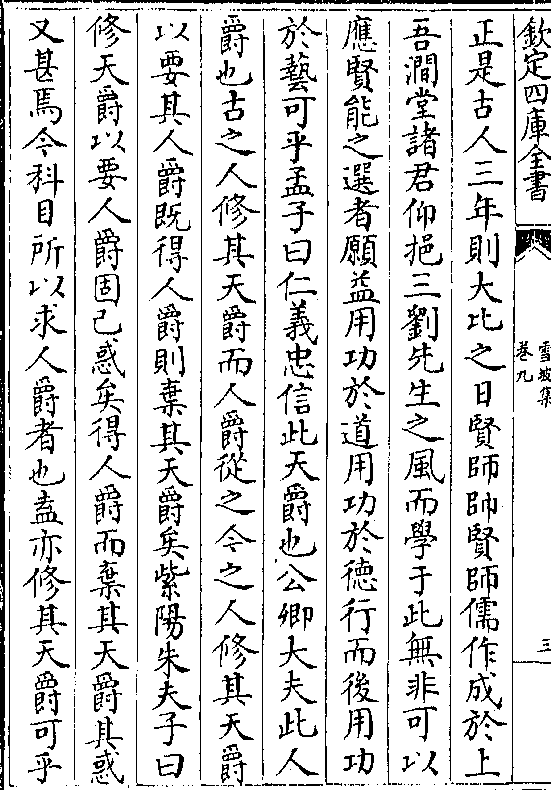 欽定四庫全書
雪坡集
卷九
三
正是古人三年則大比之日賢師帥賢師儒作成於上
吾澗堂諸君仰挹三劉先生之風而學于此無非可以
應賢能之選者願益用功於道用功於德行而後用功
於藝可乎孟子曰仁義忠信此天爵也公卿大夫此人
爵也古之人修其天爵而人爵從之今之人修其天爵
以要其人爵既得人爵則棄其天爵矣紫陽朱夫子曰
修天爵以要人爵固已惑矣得人爵而棄其天爵其惑
又甚焉今科目所以求人爵者也盍亦修其天爵可乎